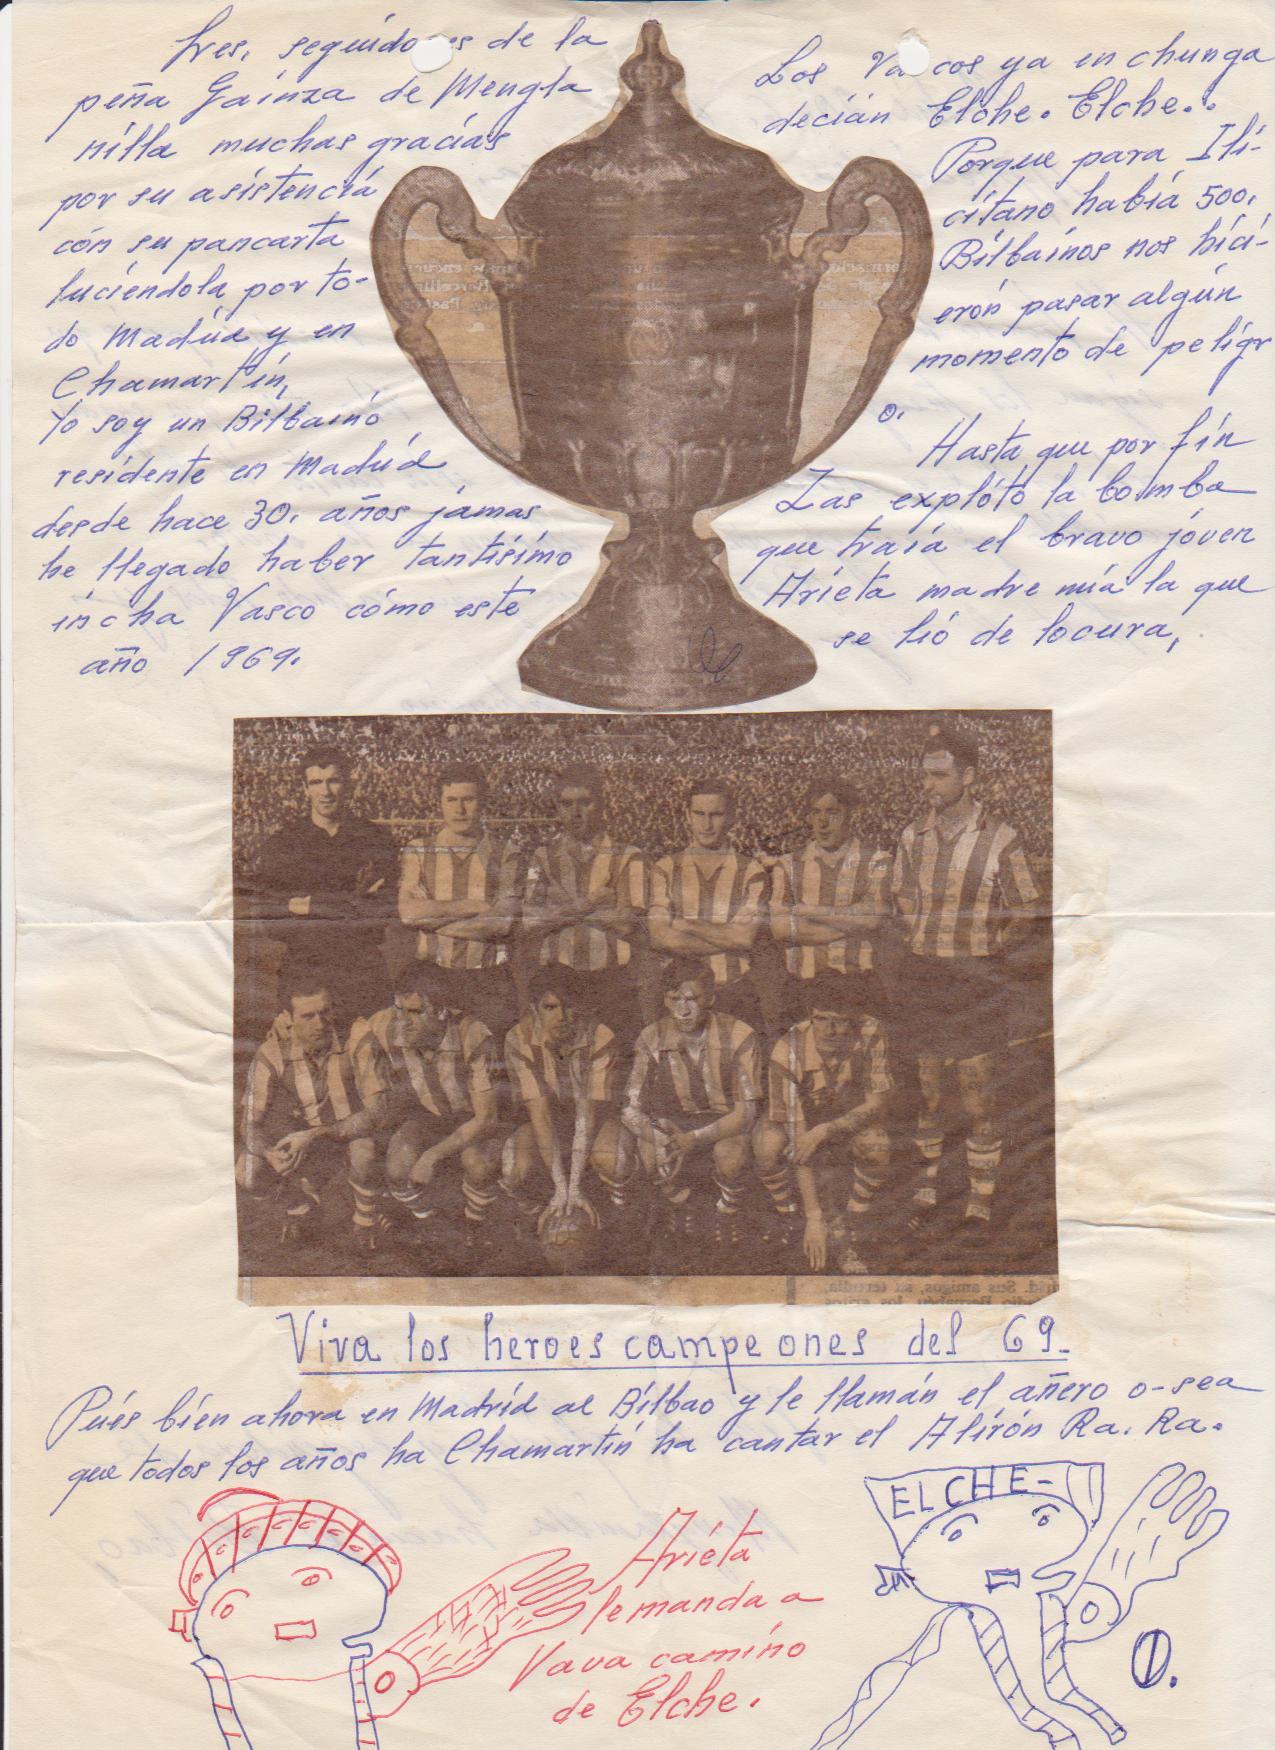 Sres, seguidores de la
peña Gaínza de Mengla
nilla muchas gracías
por su asistencía
cón su pancarta
lucíendola por to-
do Madríd y en
Chamartín,
Yo soy un Bilbaíno
resídente en Madríd
desde hace 30. años jámas
he llegado haber tantísímo
íncha Vasco cómo este
año 1969.
Los Vascos ya en chunga
decían Elche. Elche..
Porque para Ili-
citano había 500.
Bilbaínos nos híci-
erón pasar algún
momento de pelígr
o.
Hasta que por fín
Zas explótó la bomba
que traía el bravo jóven
Arieta madre mía la que
se lió de locura,
Viva los heroes campeones del 69.
Pués bíen ahora en Madríd al Bílbao y le llamán el añero o-sea
que todos los años ha Chamartín ha cantar el Alirón Ra. Ra.
ELCHE-
Aríeta
le manda a
Vava camíno
de Elche.
0.